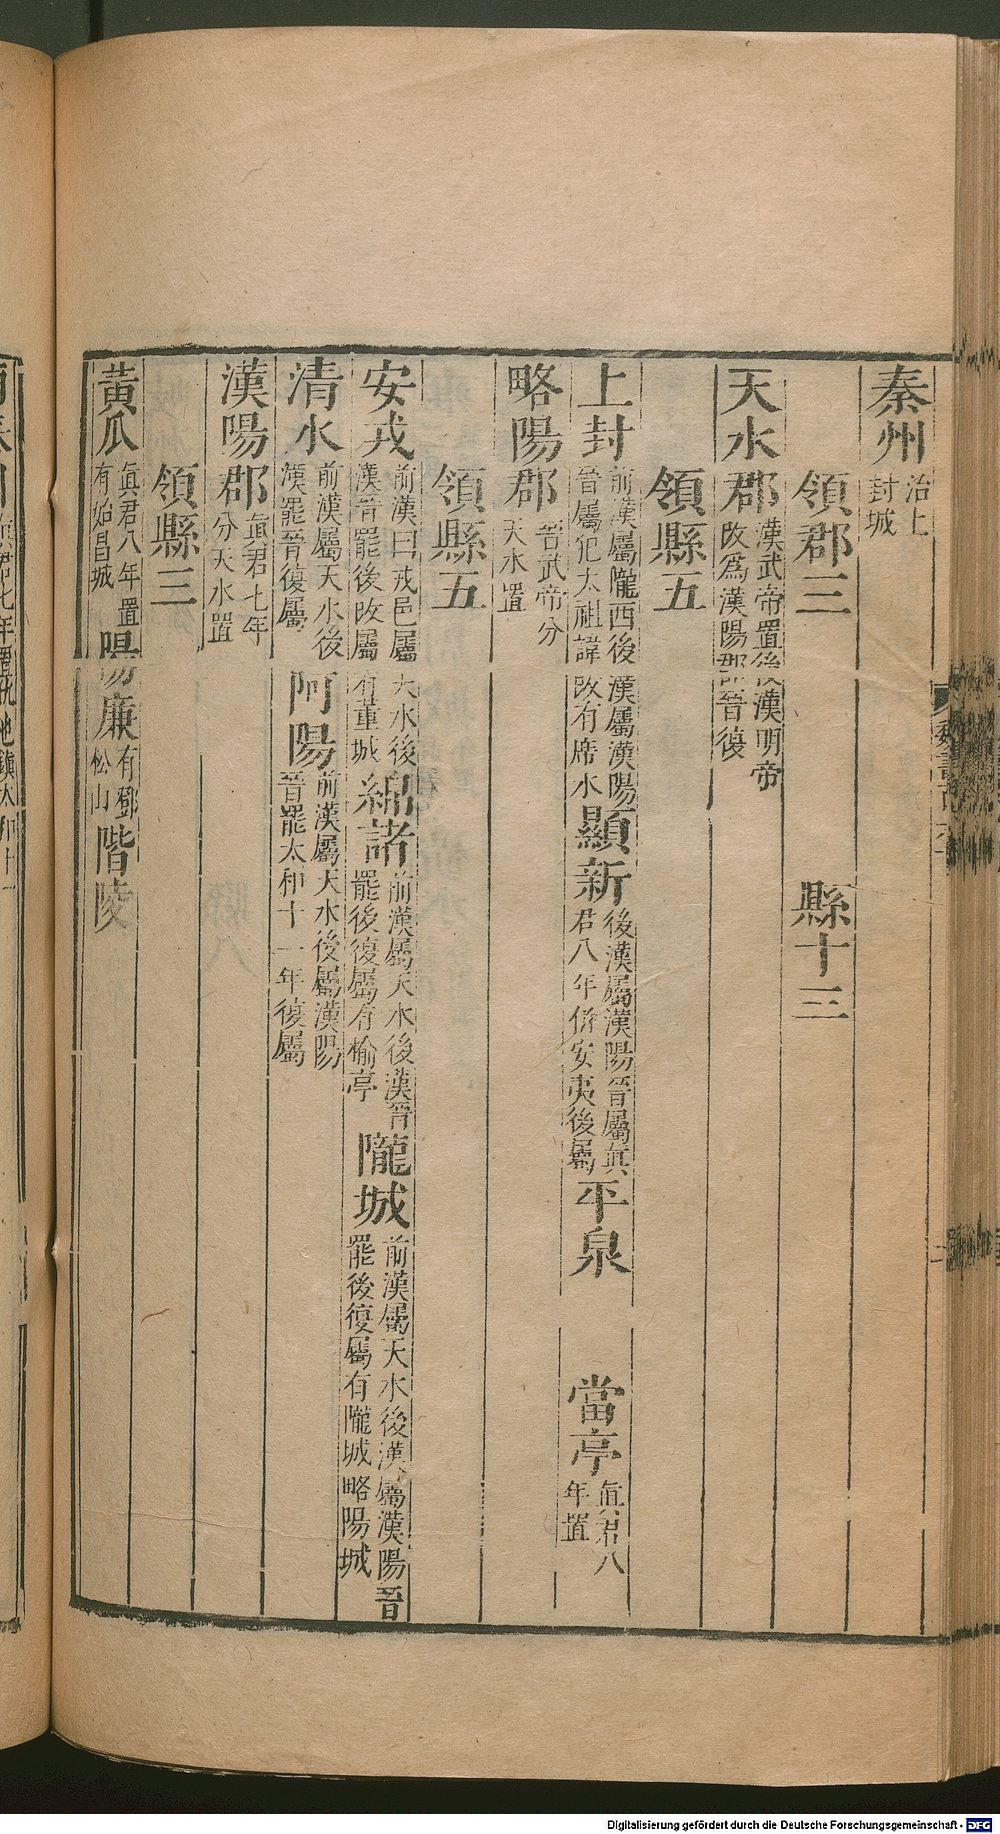 秦州治上封城
領郡三　縣十三
天水郡漢武帝置後漢明帝改爲漢陽郡晉復
領縣五
上封前漢屬隴西後漢屬漢陽晉屬犯太祖諱改有席水　顯新後漢屬漢陽晉屬眞君八年併安夷後屬　平泉　當亭眞君八年置
略陽郡晉武帝分天水置
領縣五
安戎前漢曰戎邑屬天水後漢晉罷後改屬有董城　綿諸前漢屬天水後漢晉罷後復屬有榆亭　隴城前漢屬天水後漢屬漢陽晉罷後復屬有隴城略陽城
清水前漢屬天水後漢罷晉復屬　阿陽前漢屬天水後屬漢陽晉罷太和十一年復屬
漢陽郡眞君七年分天水置
領縣三
黃瓜眞君八年置有始昌城　陽廉有鄧松山　階陵
Digitalisierung gefördert durch die Deutsche Forschungsgemeinschaft - DFG